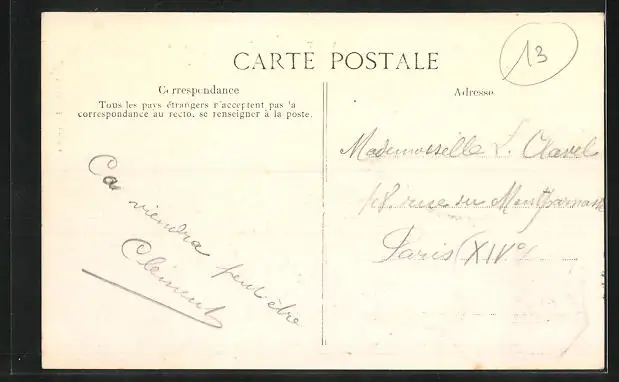 13
CARTE POSTALE
Correspondance
Tous les pays étrangers n'acceptent pas la
correspondance au recto, se renseigner à la poste.
Adresse
Mademoiselle L. Clavel
rue du Montparnasse
Paris (XIVe)
Ca viendra peut être
Clément